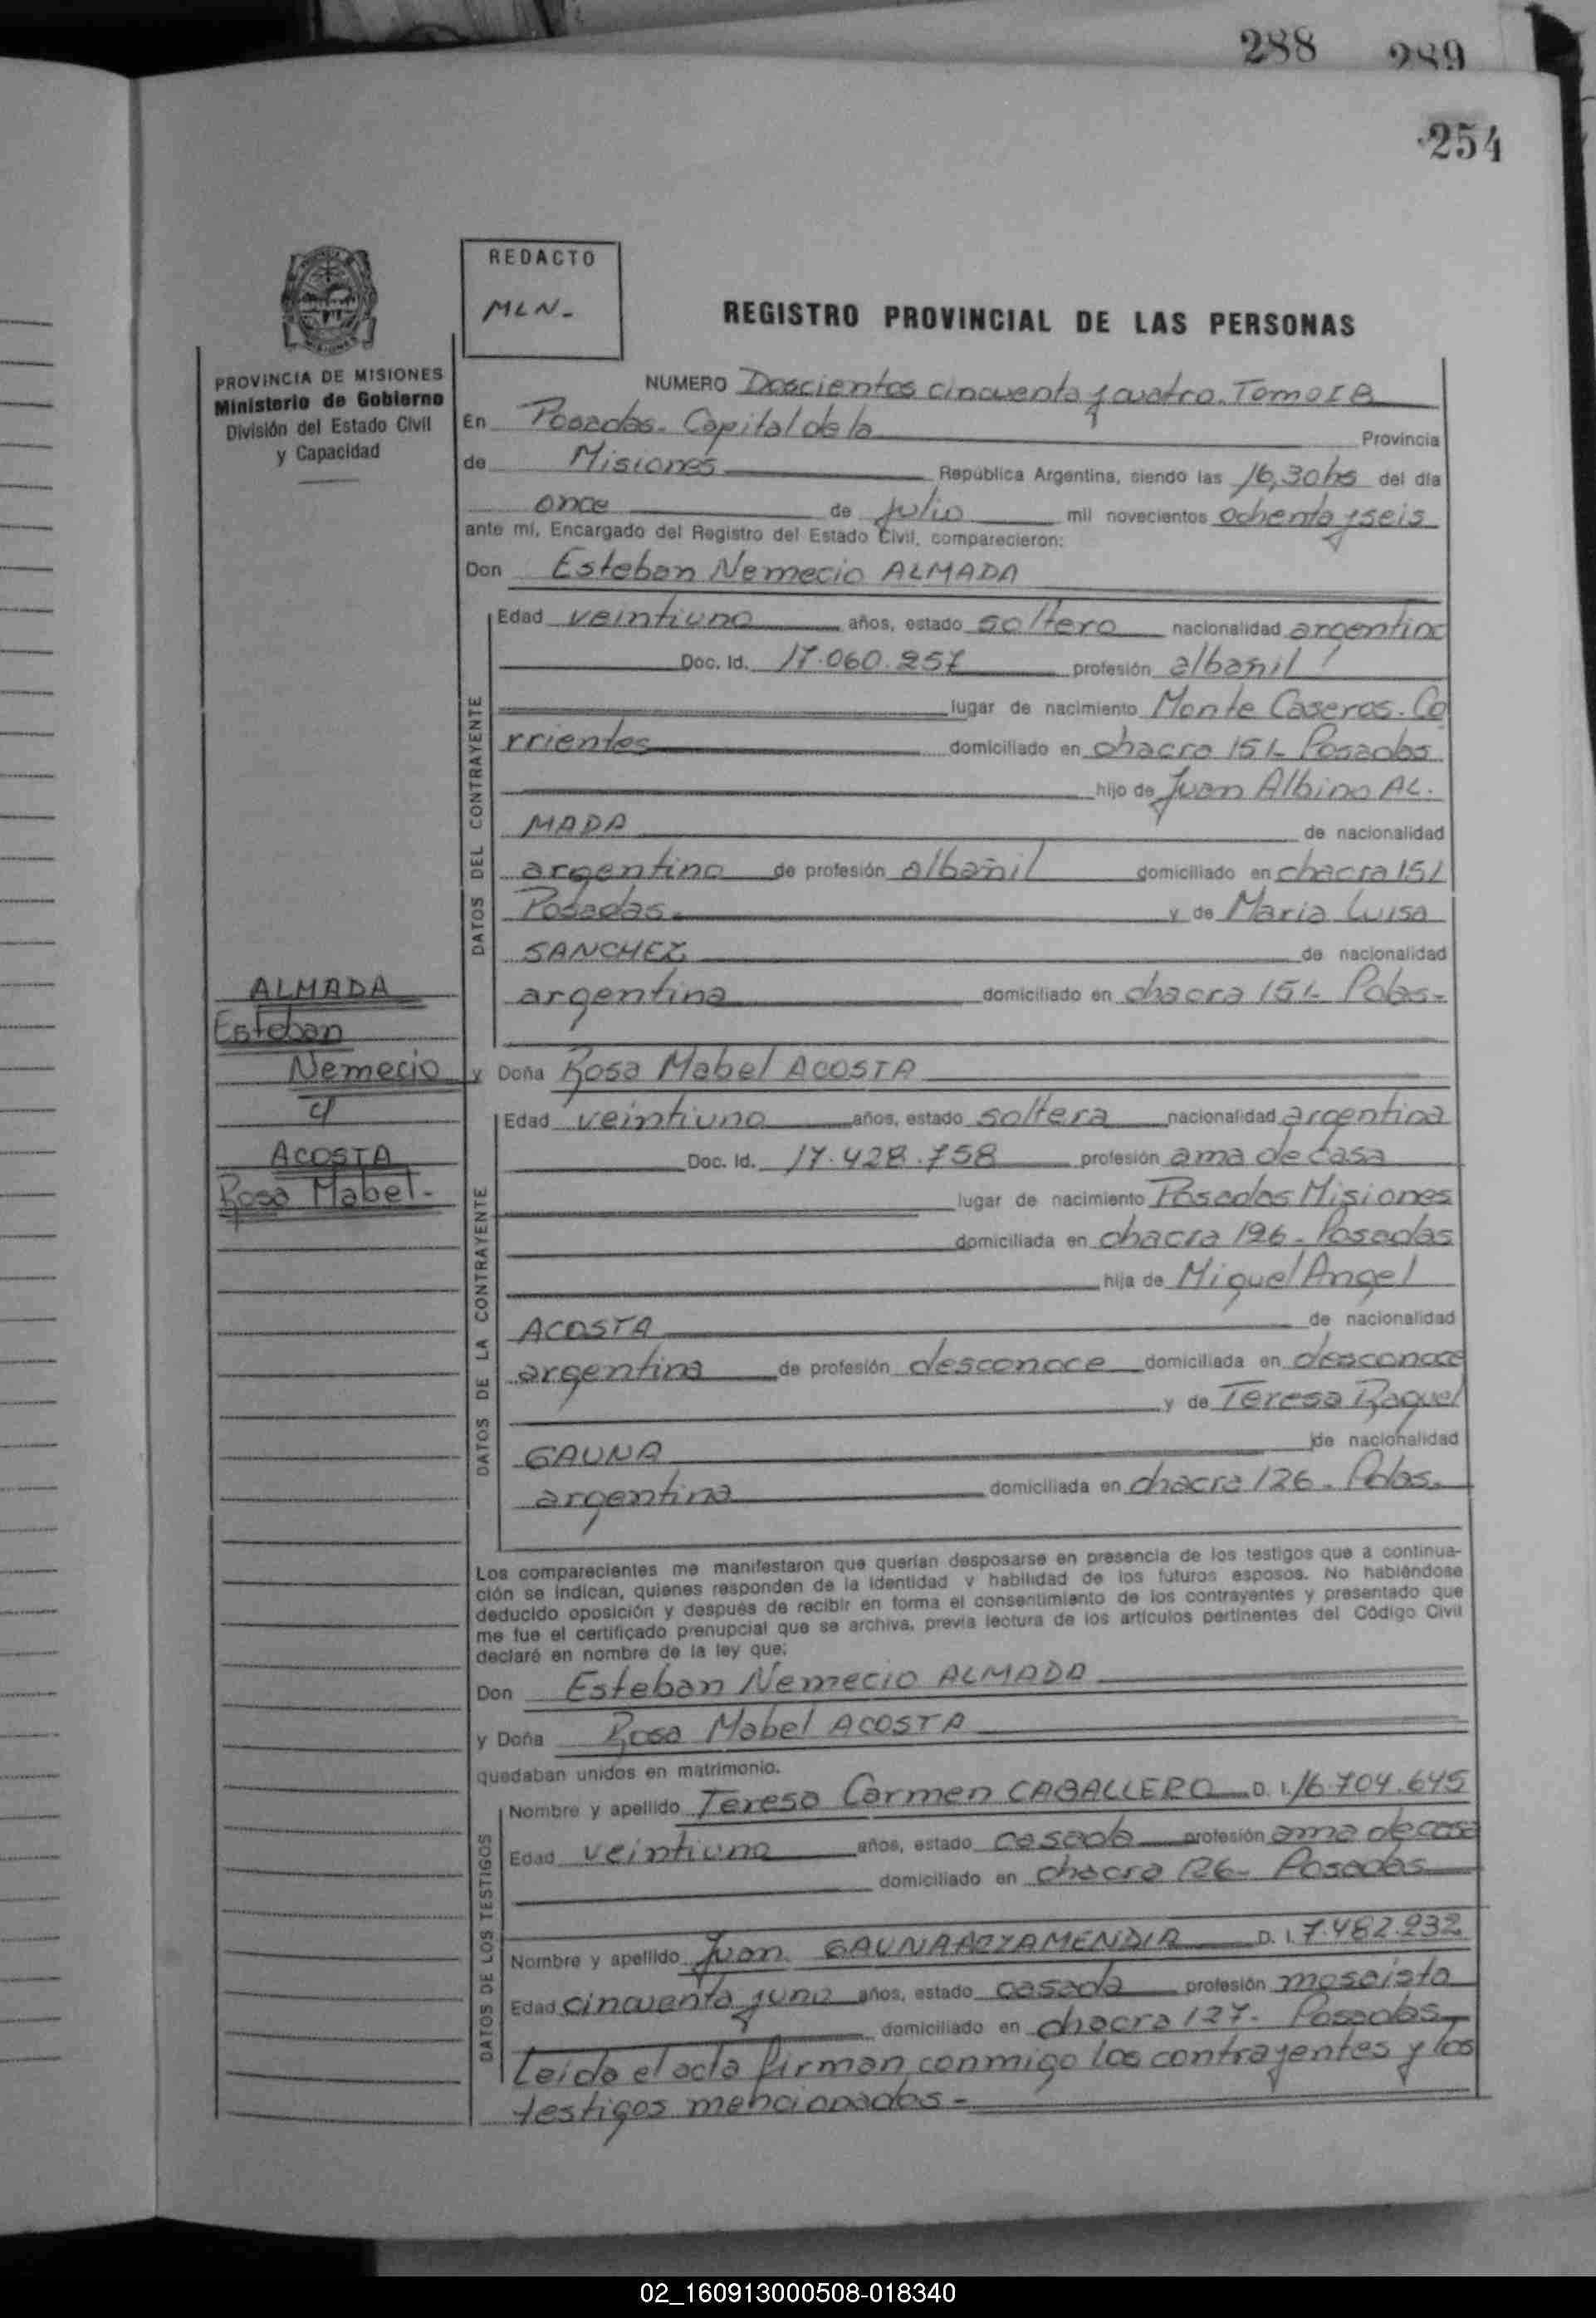 288 289
254
REDACTO
MLN-
REGISTRO PROVINCIAL DE LAS PERSONAS
PROVINCIA DE MISIONES
Ministerio de Gobierno
División del Estado Civil
y Capacidad
NUMERO Doscientos cincuenta y cuatro. Tomo I B
En Posadas. Capital de la Provincia
de Misiones República Argentina, siendo las 16,30 hs del día
once de julio mil novecientos ochenta y seis
ante mí, Encargado del Registro del Estado Civil, comparecieron:
Don Esteban Nemecio ALMADA
DATOS DEL CONTRAYENTE
Edad veintiuno años, estado soltero nacionalidad argentino
Doc. Id. 17.060.257 profesión albañil
lugar de nacimiento Monte Caseros. Co
rrientes domiciliado en chacra 151- Posadas
hijo de Juan Albino AL.
MADA de nacionalidad
argentino de profesión albañil domiciliado en chacra 151
Posadas. y de Maria Luisa
SANCHEZ de nacionalidad
argentina domiciliado en chacra 151- Pdas-
ALMADA
Esteban
Nemecio
y
ACOSTA
Rosa Mabel-
y Doña Rosa Mabel ACOSTA
DATOS DE LA CONTRAYENTE
Edad veintiuno años, estado soltera nacionalidad argentina
Doc. Id. 17.428.758 profesión ama de casa
lugar de nacimiento Posadas Misiones
domiciliada en chacra 126- Posadas
hija de Miguel Angel
ACOSTA de nacionalidad
argentina de profesión desconoce domiciliada en desconoce
y de Teresa Raquel
GAUNA de nacionalidad
argentina domiciliada en chacra 126- Pdas.
Los comparecientes me manifestaron que querían desposarse en presencia de los testigos que a continua-
ción se indican, quienes responden de la identidad y habilidad de los futuros esposos. No habiéndose
deducido oposición y después de recibir en forma el consentimiento de los contrayentes y presentado que
me fue el certificado prenupcial que se archiva, previa lectura de los artículos pertinentes del Código Civil
declaré en nombre de la ley que:
Don Esteban Nemecio ALMADA
y Doña Rosa Mabel ACOSTA
quedaban unidos en matrimonio.
DATOS DE LOS TESTIGOS
Nombre y apellido Teresa Carmen CABALLERO D. I. 16.704.645
Edad veintiuno años, estado casada profesión ama de casa
domiciliado en chacra 126- Posadas
Nombre y apellido Juan GAUNA D. I. 7.482.232
Edad cincuenta y uno años, estado casado profesión mosaista
domiciliado en chacra 127- Posadas
Leida el acta firman conmigo los contrayentes y los
testigos mencionados-
02_160913000508-018340